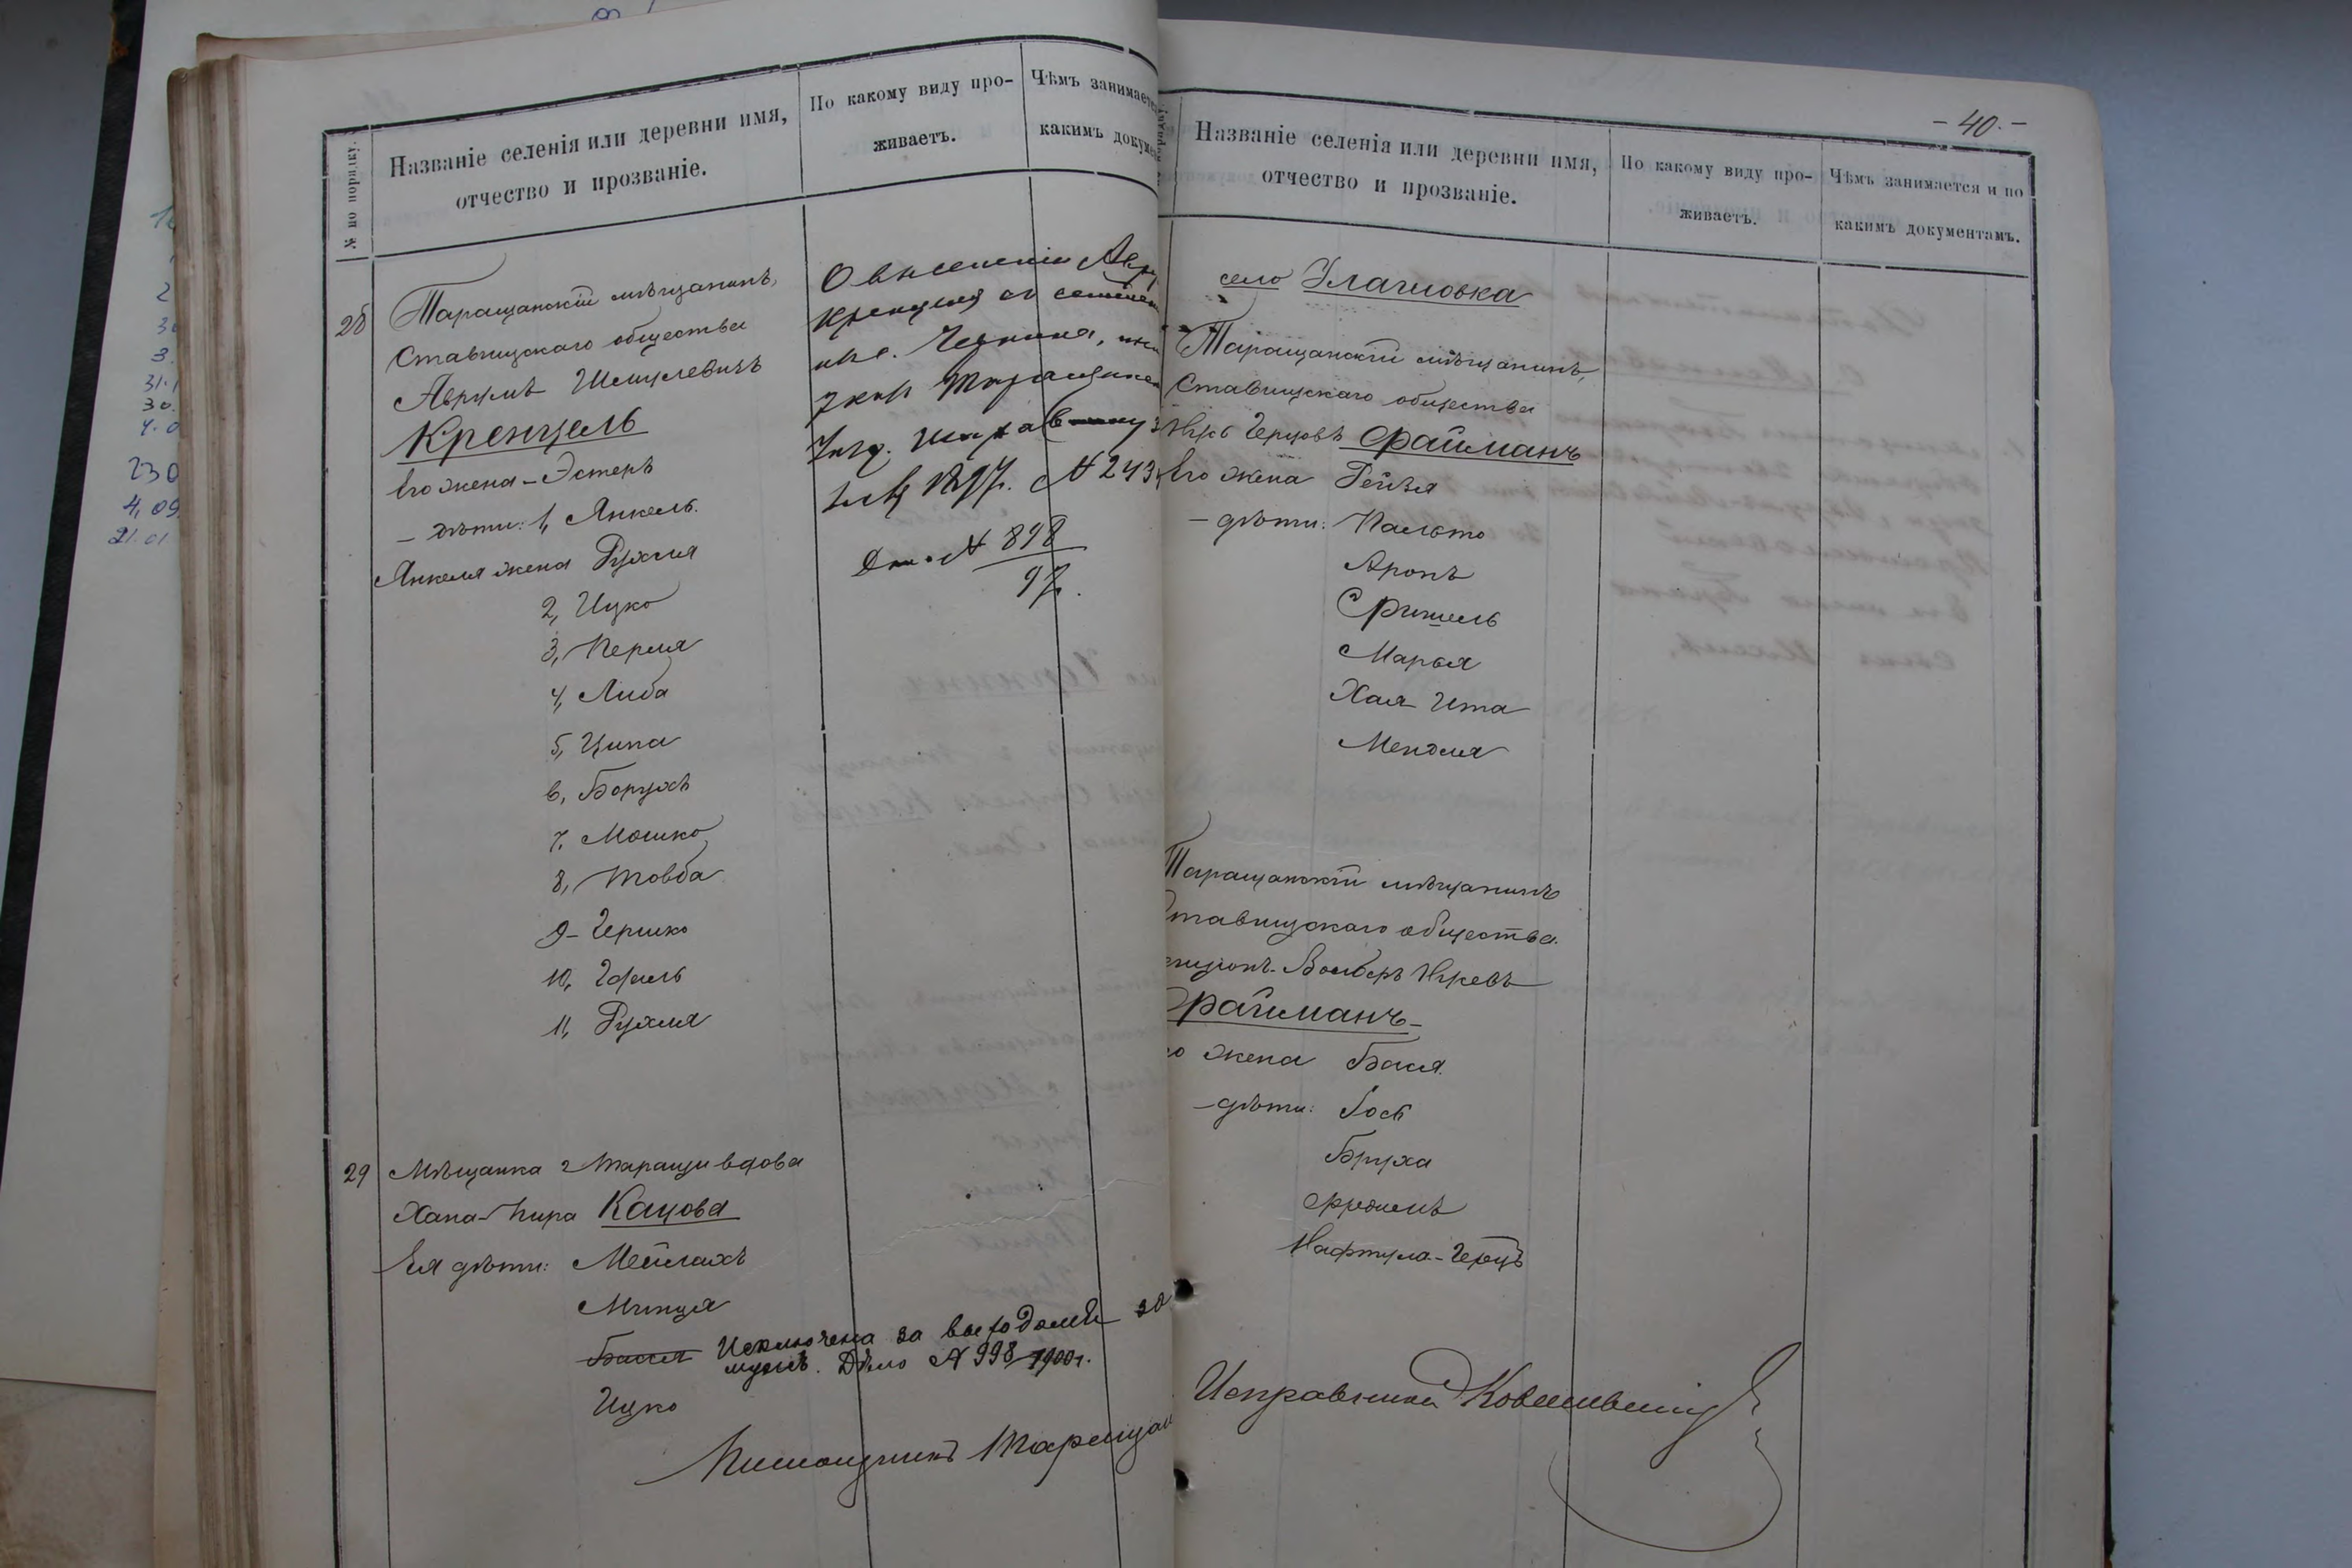 № по порядку.
Названіе селенія или деревни имя,
отчество и прозваніе.
По какому виду про-
живаетъ.
Чѣмъ занимает
какимъ докуме
28
Таращанскій мѣщанинъ,
Ставищскаго общества
Аврумъ Шмулевичъ
Кренцель
Его жена - Эстеръ
- дѣти: 1, Янкель.
Янкеля жена Рухля
2, Ицко
3, Перля
4, Либа
5, Ципа
6, Борухъ
7. Мошко
8, Товба
9 - Гершко
10, Гфиль
11, Рухля
О выселеніи Авр
Кренцеля съ семіей
Черкина,
Таращанск
1897г. № 243
Дѣло № 898
97.
29
Мѣщанка г Таращи вдова
Хана-Кира Кацова
Ея дѣти: Мейлахъ
Минця
Бася Исключена за выходомъ за
мужъ. Дѣло № 998 1900г.
Ицко
Помощникъ Таращан
- 40. -
Названіе селенія или деревни имя,
отчество и прозваніе.
По какому виду про-
живаетъ.
Чѣмъ занимается и по
какимъ документамъ.
село Улашовка
Таращанскій мѣщанинъ,
Ставищскаго общества
Герцовъ Фрайманъ
Его жена Рейзя
- дѣти: Пальто
Аронъ
Фришель
Марья
Хая Ита
Мендля
Таращанскій мѣщанинъ
Ставищскаго общества.
Волберъ
Фрайманъ -
го жена Бася.
- дѣти: Іось
Бруха
Нафтула - Герцъ
Исправникъ